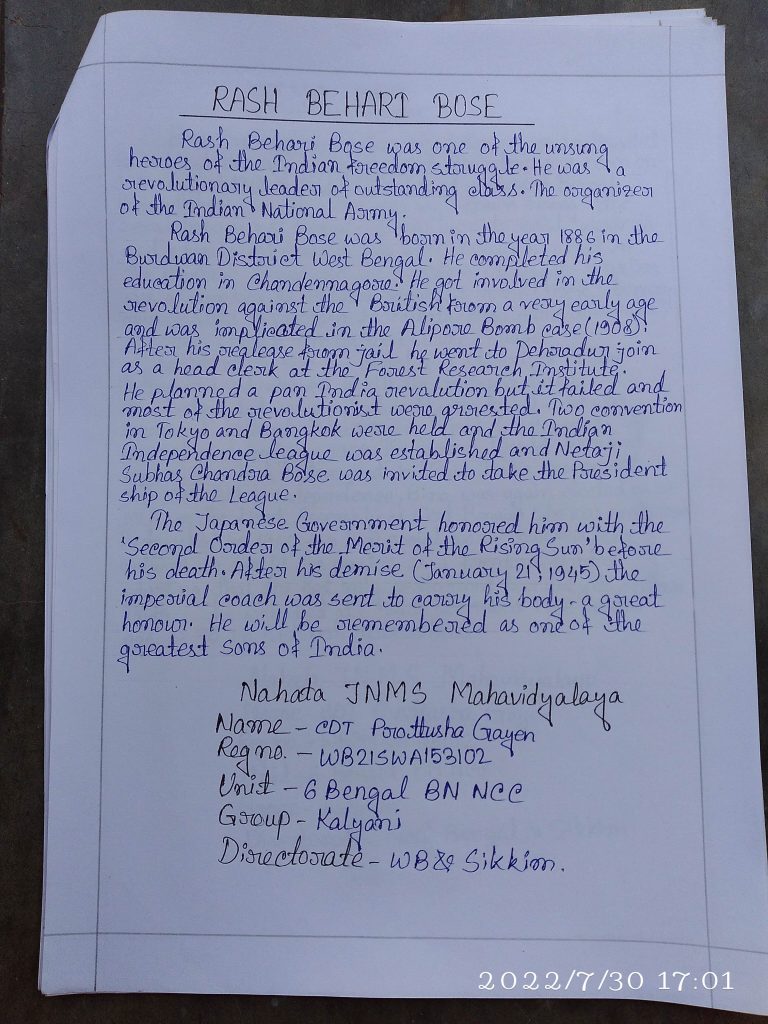 RASH BEHARI BOSE
Rash Behari Bose was one of the unsung
heroes of the Indian freedom struggle. He was a
revolutionary leader of outstanding class. The organizer
of the Indian National Army.
Rash Behari Bose was born in the year 1886 in the
Burdwan District West Bengal. He completed his
education in Chandennagore. He got involved in the
revolution against the British from a very early age
and was implicated in the Alipore Bomb case (1908).
After his reglease from jail he went to Dehradun join
as a head clerk at the Forest Research Institute.
He planned a pan India revalution but it failed and
most of the revolutionist were arrested. Two convention
in Tokyo and Bangkok were held and the Indian
Independence league was established and Netaji
Subhas Chandra Bose was invited to take the President
ship of the League.
The Japanese Government honored him with the
'Second Order of the Merit of the Rising Sun' before
his death. After his demise (January 21, 1945) the
imperial coach was sent to carry his body - a great
honour. He will be remembered as one of the
greatest sons of India.
Nahata JNMS Mahavidyalaya
Name - CDT Porottusha Gayen
Reg no. - WB21SWA153102
Unit - 6 Bengal BN NCC
Group - Kalyani
Directorate - WB & Sikkim.
2022/7/30 17:01